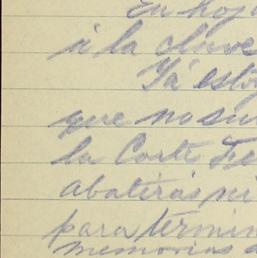 En hoja
á la clave
Yá estoy
que no su
la Corte Fe
abatirás ni
para termin
memorias a